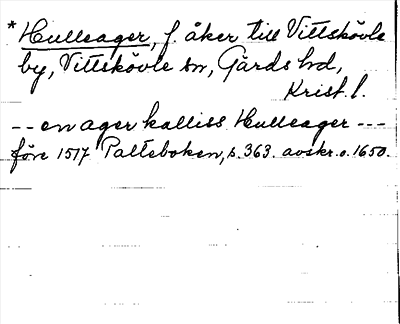 * Hulleager, f. åker till Vittskövle
by, Vittskövle sn, Gärds hd,
Krist. l.
-- en ager kalliss Hulleager ---
före 1517 Palteboken, s. 363. avskr. o. 1650.